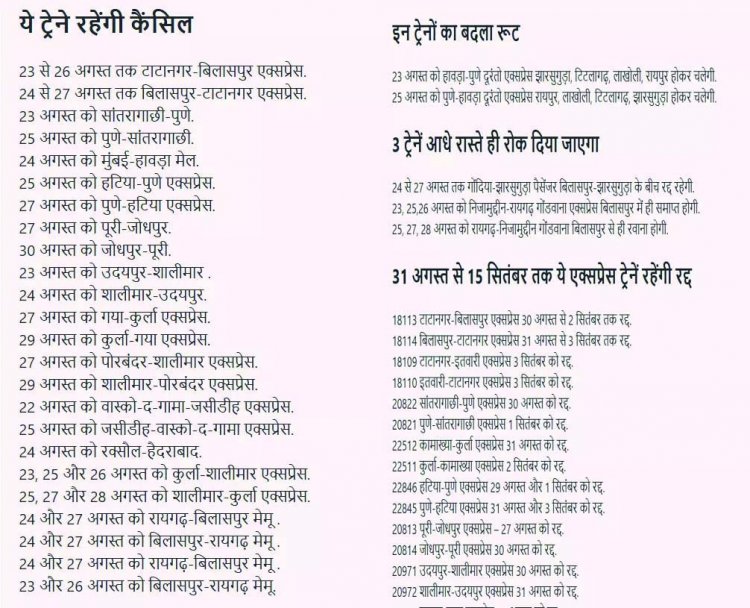 ये ट्रेने रहेंगी कैंसिल
23 से 26 अगस्त तक टाटानगर-बिलासपुर एक्सप्रेस.
24 से 27 अगस्त तक बिलासपुर-टाटानगर एक्सप्रेस.
23 अगस्त को सांतरागाछी-पुणे.
25 अगस्त को पुणे-सांतरागाछी.
24 अगस्त को मुंबई-हावड़ा मेल.
25 अगस्त को हटिया-पुणे एक्सप्रेस.
27 अगस्त को पुणे-हटिया एक्सप्रेस.
27 अगस्त को पूरी-जोधपुर.
30 अगस्त को जोधपुर-पूरी.
23 अगस्त को उदयपुर-शालीमार .
24 अगस्त को शालीमार-उदयपुर.
27 अगस्त को गया-कुर्ला एक्सप्रेस.
29 अगस्त को कुर्ला-गया एक्सप्रेस.
27 अगस्त को पोरबंदर-शालीमार एक्सप्रेस.
29 अगस्त को शालीमार-पोरबंदर एक्सप्रेस.
22 अगस्त को वास्को-द-गामा-जसीडीह एक्सप्रेस.
25 अगस्त को जसीडीह-वास्को-द-गामा एक्सप्रेस.
24 अगस्त को रक्सौल-हैदराबाद.
23, 25 और 26 अगस्त को कुर्ला-शालीमार एक्सप्रेस.
25, 27 और 28 अगस्त को शालीमार-कुर्ला एक्सप्रेस.
24 और 27 अगस्त को रायगढ़-बिलासपुर मेमू .
24 और 27 अगस्त को बिलासपुर-रायगढ़ मेमू .
24 और 27 अगस्त को रायगढ़-बिलासपुर मेमू .
23 और 26 अगस्त को बिलासपुर-रायगढ़ मेमू.
इन ट्रेनों का बदला रूट
23 अगस्त को हावड़ा-पुणे दूरंतो एक्सप्रेस झारसुगुड़ा, टिटलागढ़, लाखोली, रायपुर होकर चलेगी.
25 अगस्त को पुणे-हावड़ा दूरंतो एक्सप्रेस रायपुर, लाखोली, टिटलागढ़, झारसुगुड़ा होकर चलेगी.
3 ट्रेनें आधे रास्ते ही रोक दिया जाएगा
24 से 27 अगस्त तक गोंदिया-झारसुगुड़ा पैसेंजर बिलासपुर-झारसुगुड़ा के बीच रद्द रहेगी.
23, 25,26 अगस्त को निजामुद्दीन-रायगढ़ गोंडवाना एक्सप्रेस बिलासपुर में ही समाप्त होगी.
25, 27, 28 अगस्त को रायगढ़-निजामुद्दीन गोंडवाना बिलासपुर से ही रवाना होगी.
31 अगस्त से 15 सितंबर तक ये एक्सप्रेस ट्रेनें रहेंगी रद्द
18113 टाटानगर-बिलासपुर एक्सप्रेस 30 अगस्त से 2 सितंबर तक रद्द.
18114 बिलासपुर-टाटानगर एक्सप्रेस 31 अगस्त से 3 सितंबर तक रद्द.
18109 टाटानगर-इतवारी एक्सप्रेस 3 सितंबर को रद्द.
18110 इतवारी-टाटानगर एक्सप्रेस 3 सितंबर को रद्द.
20822 सांतरागाछी-पुणे एक्सप्रेस 30 अगस्त को रद्द.
20821 पुणे-सांतरागाछी एक्सप्रेस 1 सितंबर को रद्द.
22512 कामाख्या-कुर्ला एक्सप्रेस 31 अगस्त को रद्द.
22511 कुर्ला-कामाख्या एक्सप्रेस 2 सितंबर को रद्द.
22846 हटिया-पुणे एक्सप्रेस 29 अगस्त और 1 सितंबर को रद्द.
22845 पुणे-हटिया एक्सप्रेस 31 अगस्त और 3 सितंबर को रद्द.
20813 पूरी-जोधपुर एक्सप्रेस – 27 अगस्त को रद्द.
20814 जोधपुर-पूरी एक्सप्रेस 30 अगस्त को रद्द.
20971 उदयपुर-शालीमार एक्सप्रेस 30 अगस्त को रद्द.
20972 शालीमार-उदयपुर एक्सप्रेस 31 अगस्त को रद्द.